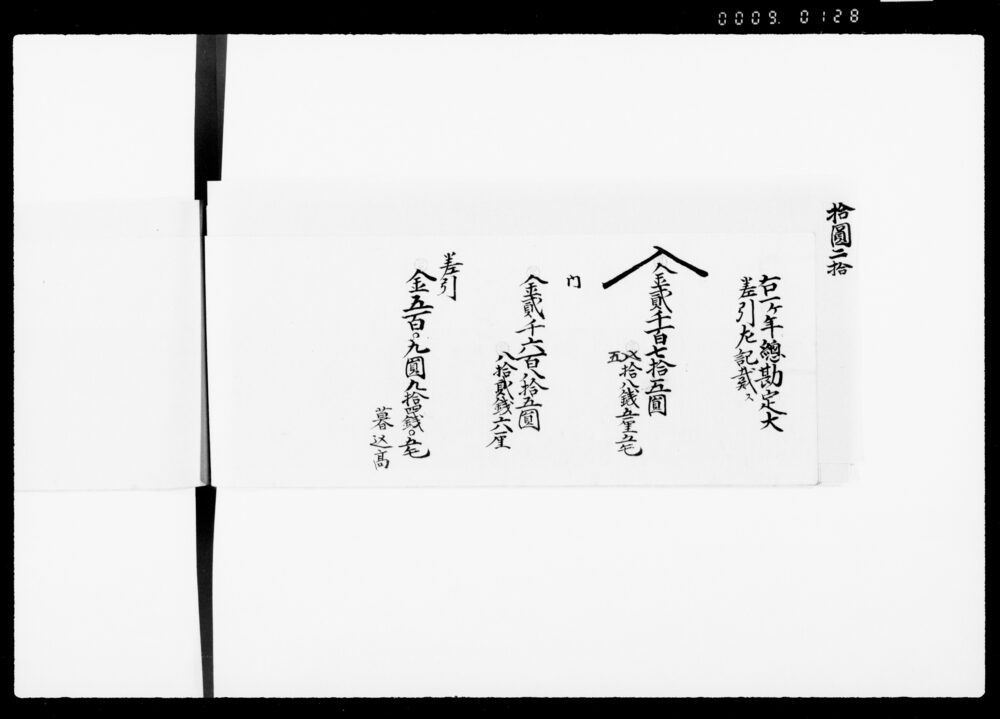 0009. 0128
拾圓二拾
右一ヶ年總勘定大
差引左記載ス
入
金貳千百七拾五圓
拾八銭五厘五毛
五
内
金貳千六百八拾五圓
八拾貳銭六厘
差引
金五百〇九圓九拾四銭〇五毛
暮込高